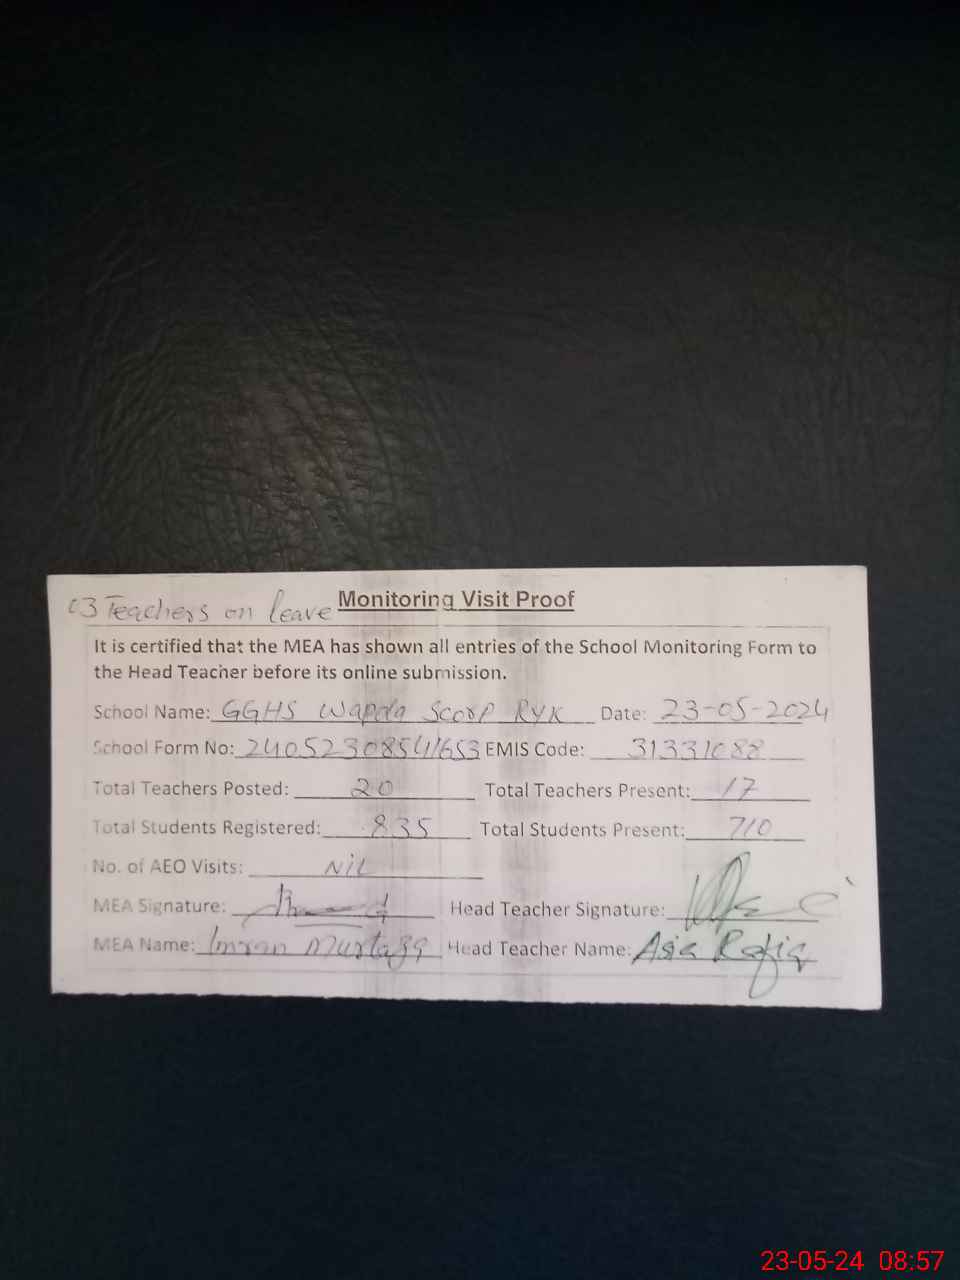 03 Teachers on leave Monitoring Visit Proof
It is certified that the MEA has shown all entries of the School Monitoring Form to
the Head Teacher before its online submission.
School Name: GGHS Wapda Scarp RYK Date: 23-05-2024
School Form No: 24052308541653 EMIS Code: 31331088
Total Teachers Posted: 20 Total Teachers Present: 17
Total Students Registered: 835 Total Students Present: 710
No. of AEO Visits: NiL
MEA Signature: Head Teacher Signature:
MEA Name: Imran Murtaza Head Teacher Name: Asia Rafiq
23-05-24 08:57